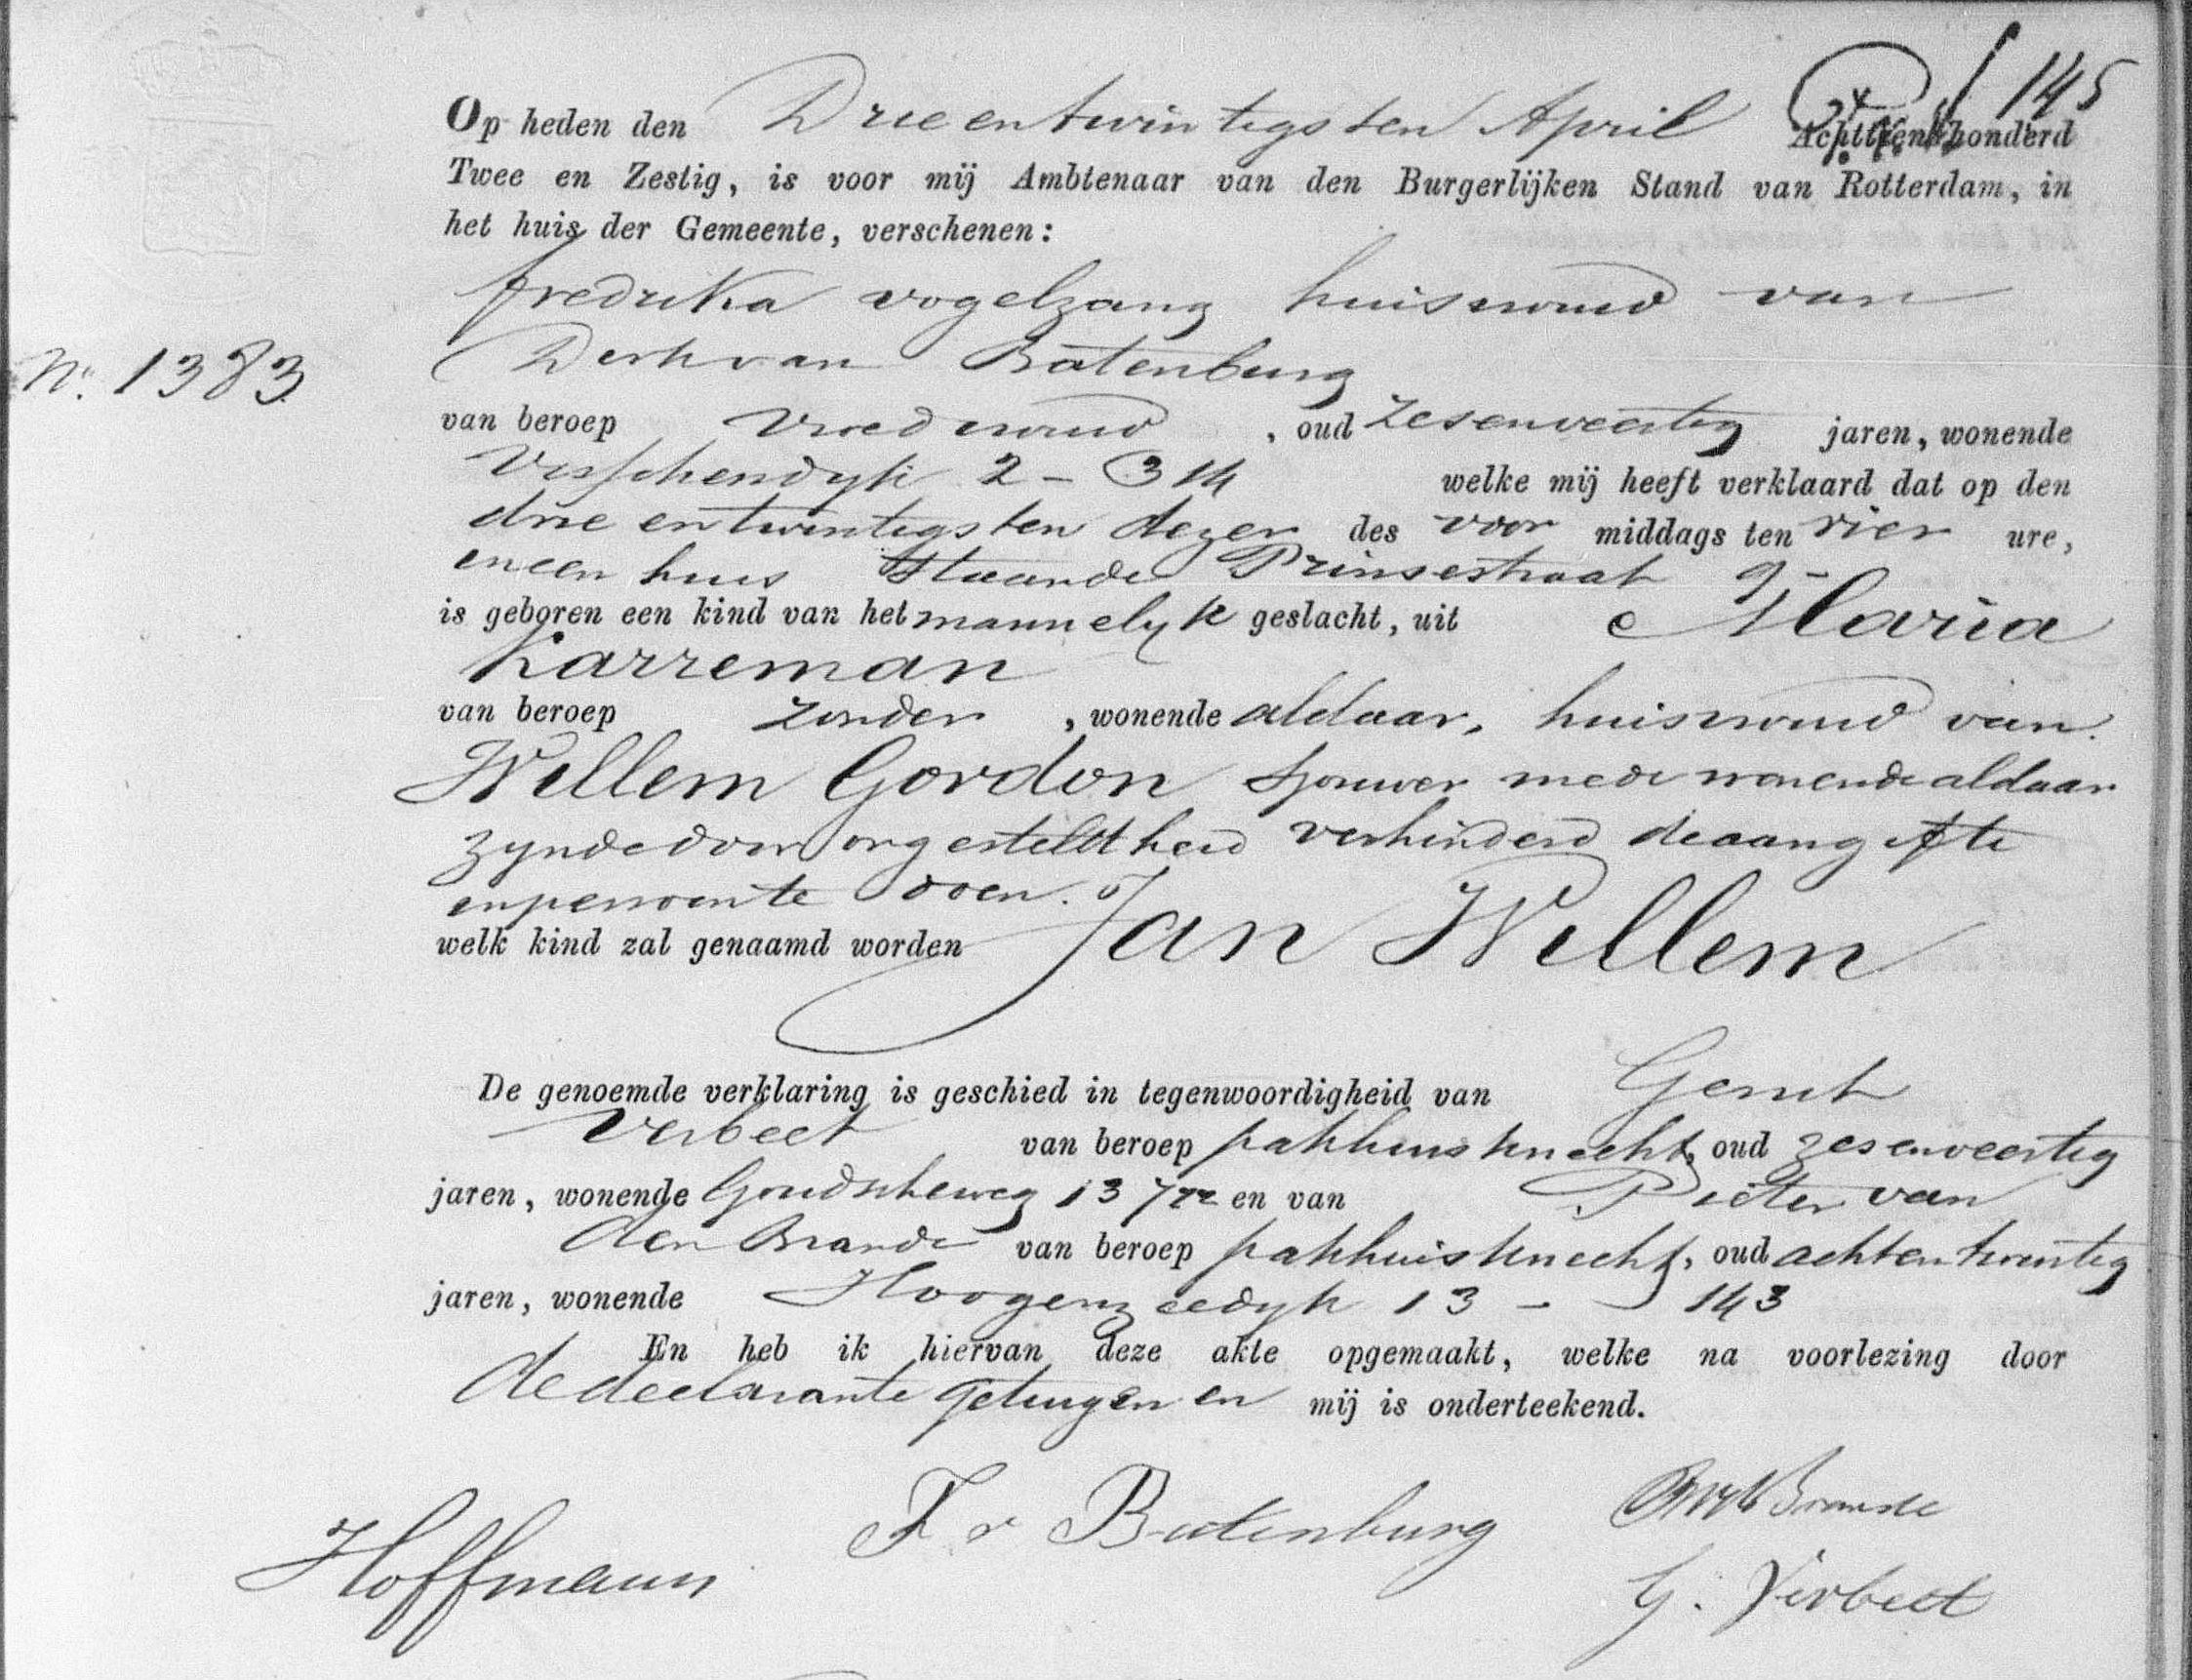 145
Op heden den Drieentwintigsten April Achttienhonderd
Twee en Zestig, is voor mij Ambtenaar van den Burgerlijken Stand van Rotterdam, in
het huis der Gemeente, verschenen:
fredrika vogelzang huisvrouw van
No. 1383
Derk van Batenburg
van beroep Vroedvrouw, oud Zesenveertig jaren, wonende
Visschersdyk 2 - 314 welke mij heeft verklaard dat op den
drie entwintigsten dezer des voor middags ten vier ure,
in een huis staande Prinsestraat 9-
is geboren een kind van het mannelyk geslacht, uit Maria
Karreman
van beroep zonder, wonende aldaar, huisvrouw van
Willem Gordon Sjouwer mede wonende aldaar
zynde door ongesteldheid verhinderd de aangifte
in persoon te doen.
welk kind zal genaamd worden Jan Willem
De genoemde verklaring is geschied in tegenwoordigheid van Gerrit
Verbeet van beroep pakhuisknecht, oud zesenveertig
jaren, wonende Goudscheweg 13 en van Pieter van
den Brande van beroep pakhuisknecht, oud achtentwintig
jaren, wonende Hoogenzeedyk 13 - 143
En heb ik hiervan deze akte opgemaakt, welke na voorlezing door
de declarante getuigen en mij is onderteekend.
F v Batenburg
Brande
Hoffmann
G. Verbeet